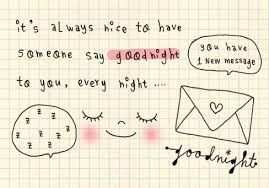 it's always nice to have
someone say goodnight
to you, every night ....
you have
1 new message
z z z
z z z z
z z z z
z z z
goodnight